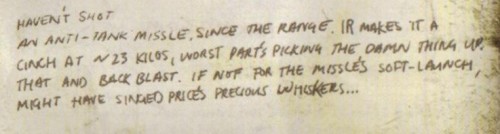 HAVEN'T SHOT
AN ANTI-TANK MISSLE, SINCE THE RANGE. IR MAKES IT A
CINCH AT ~23 KILOS, WORST PART'S PICKING THE DAMN THING UP.
THAT AND BACK BLAST. IF NOT FOR THE MISSLE'S SOFT-LAUNCH,
MIGHT HAVE SINGED PRICE'S PRECIOUS WHISKERS...